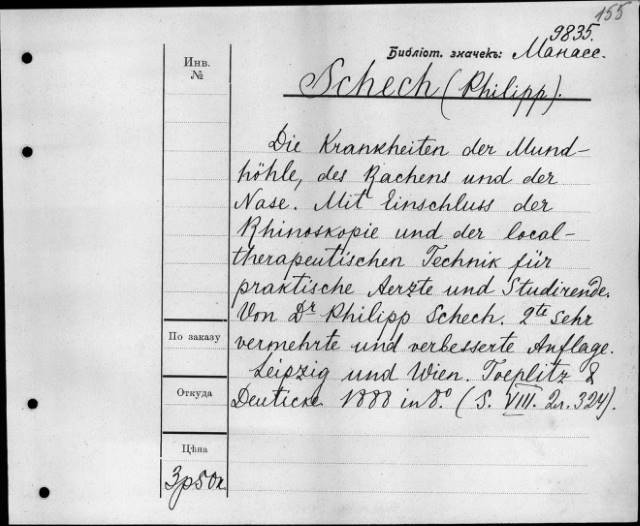 155
9835.
Библіот. значекъ: Манасс.
Инв.
№
Schech (Philipp).
Die Krankheiten der Mund-
höhle, des Rachens und der
Nase. Mit Einschluss der
Rhinoskopie und der local-
therapeutischen Technik für
praktische Aerzte und Studirende.
Von Dr Philipp Schech. 2te sehr
vermehrte und verbesserte Auflage.
Leipzig und Wien. Toeplitz &
Deuticke 1888 in 8.° (S. VIII. 2л. 324).
По заказу
Откуда
Цѣна
3р50к